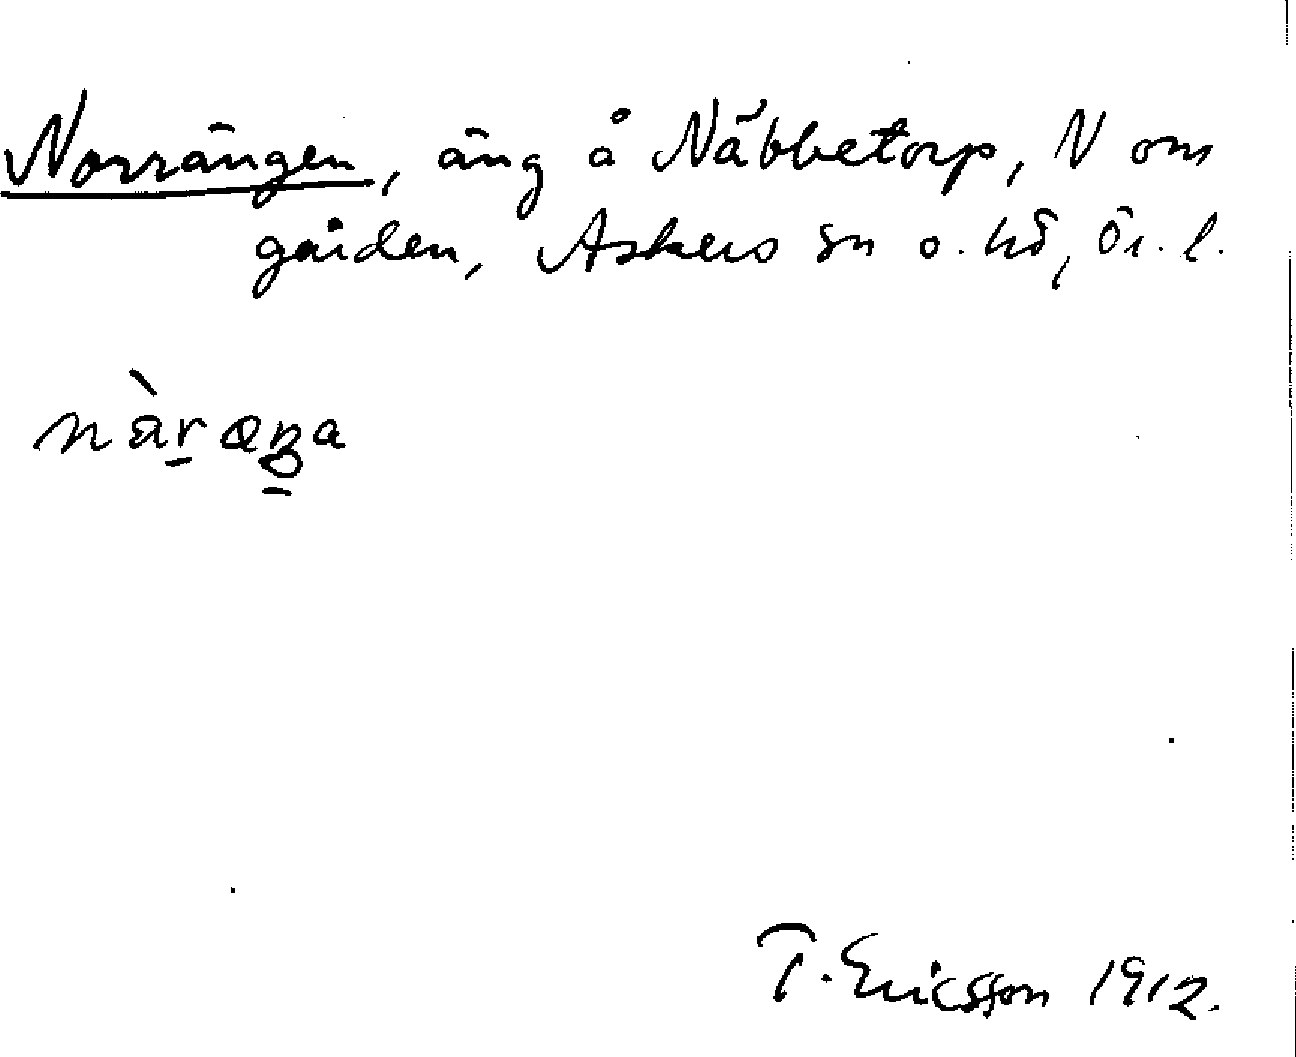 Norrängen, äng å Näbbetorp, N om
gården, Askers sn o. hd, Ör. l.
T. Ericsson 1912.